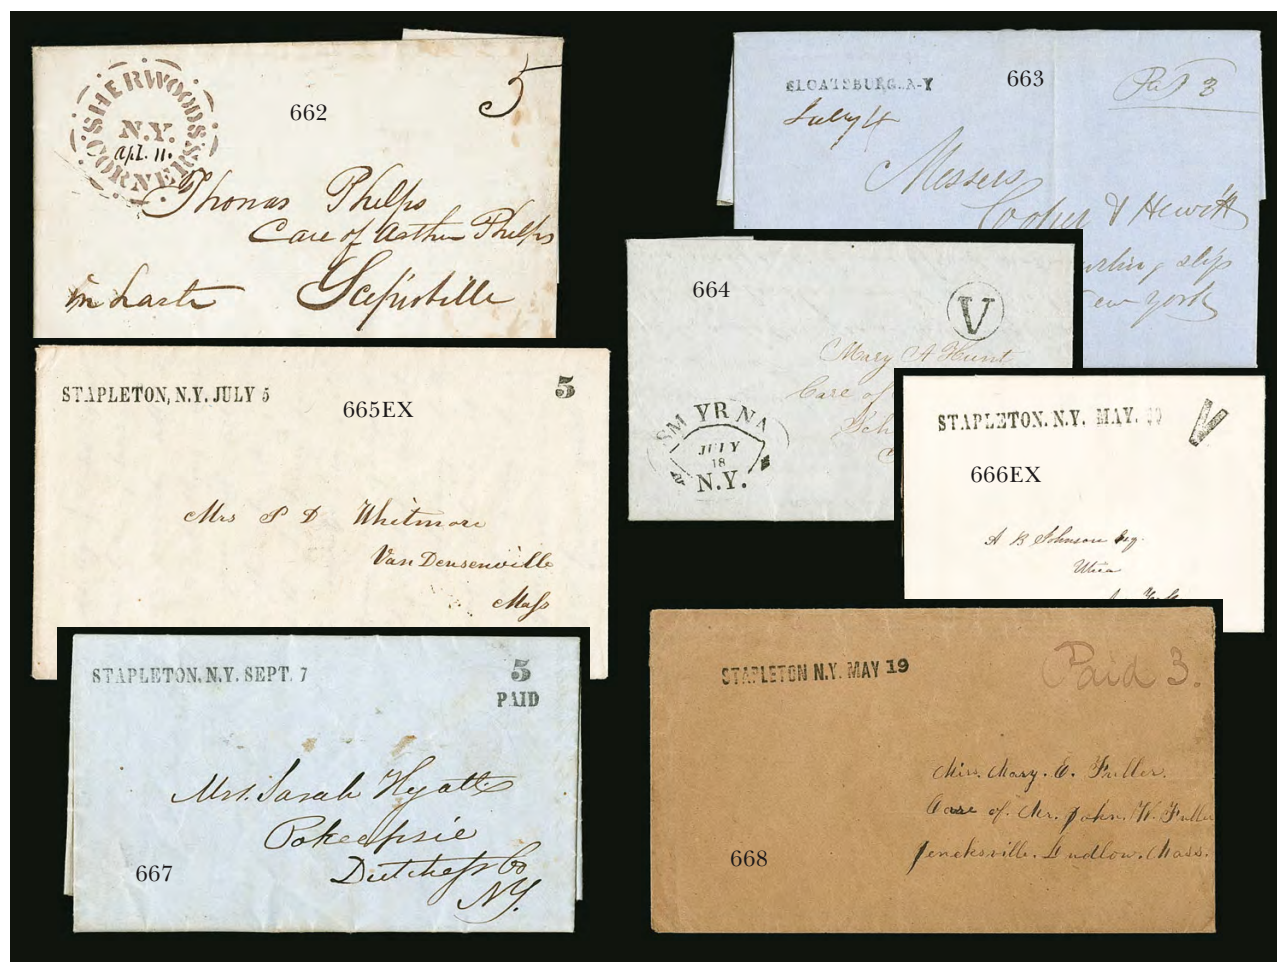 SHERWOOD'S
N.Y.
Apl. 11.
CORNERS
662
5
Thomas Phelps
Care of Arthur Phelps
in haste Scipioville
SLOATSBURG. N-Y
663
Paid 3
July 4
Messers
Cooper & Hewitt
Burling slip
New York
664
V
Mary A Hunt
Care of
SMYRNA
JULY
18
N.Y.
STAPLETON, N.Y. JULY 5
5
665EX
Mrs S D Whitmore
Van Deusenville
Mass
STAPLETON. N.Y. MAY.
V
666EX
A B Johnson Esq.
Utica
STAPLETON. N.Y. SEPT. 7
5
PAID
Mrs. Sarah Hyatt
Pokeepsie
Dutchess Co
NY.
667
STAPLETON N.Y. MAY 19
Paid 3.
Miss. Mary. E. Fuller.
Care of. Mr. John. W. Fuller
Jencksville. Ludlow. Mass.
668